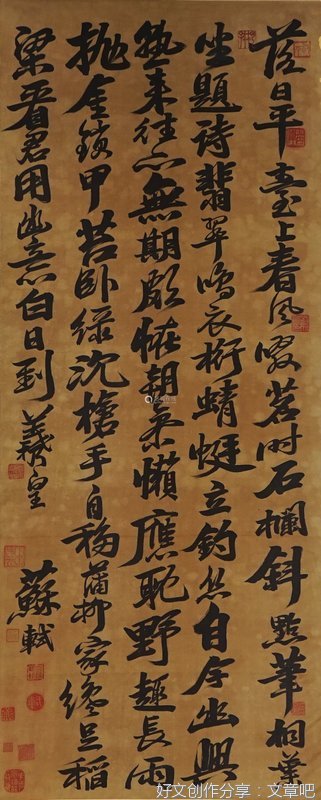 落日平臺上春風啜茗時石欄斜點筆桐葉
坐題詩翡翠鳴衣桁蜻蜓立釣絲自今幽興
熟來往亦無期頗恠朝參懶應耽野趣長雨
拋金鎖甲苔卧綠沈槍手自移蒲柳家纔足稻
梁看君用幽意白日到羲皇
蘇軾
好文创作分享：文章吧